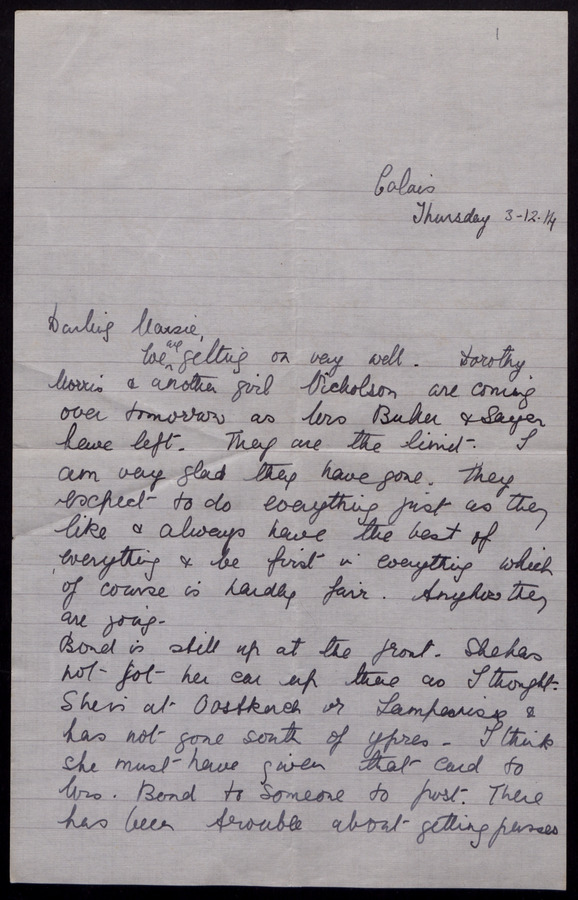 1
Calais
Thursday 3-12-14
Darling Maisie,
We are getting on very well. Dorothy
Morris & another girl Nicholson are coming
over tomorrow as Mrs & Sayer
have left. They are the limit. I
am very glad they have gone. They
expect to do everything just as they
like & always have the best of
everything & be first in everything which
of course is hardly fair. Anyhow they
are going.
Bond is still up at the front. She has
not got her car up there as I thought.
She is at Oostkerk or &
has not gone south of Ypres. I think
she must have given that card to
Mrs. Bond to someone to post. There
has been trouble about getting passes